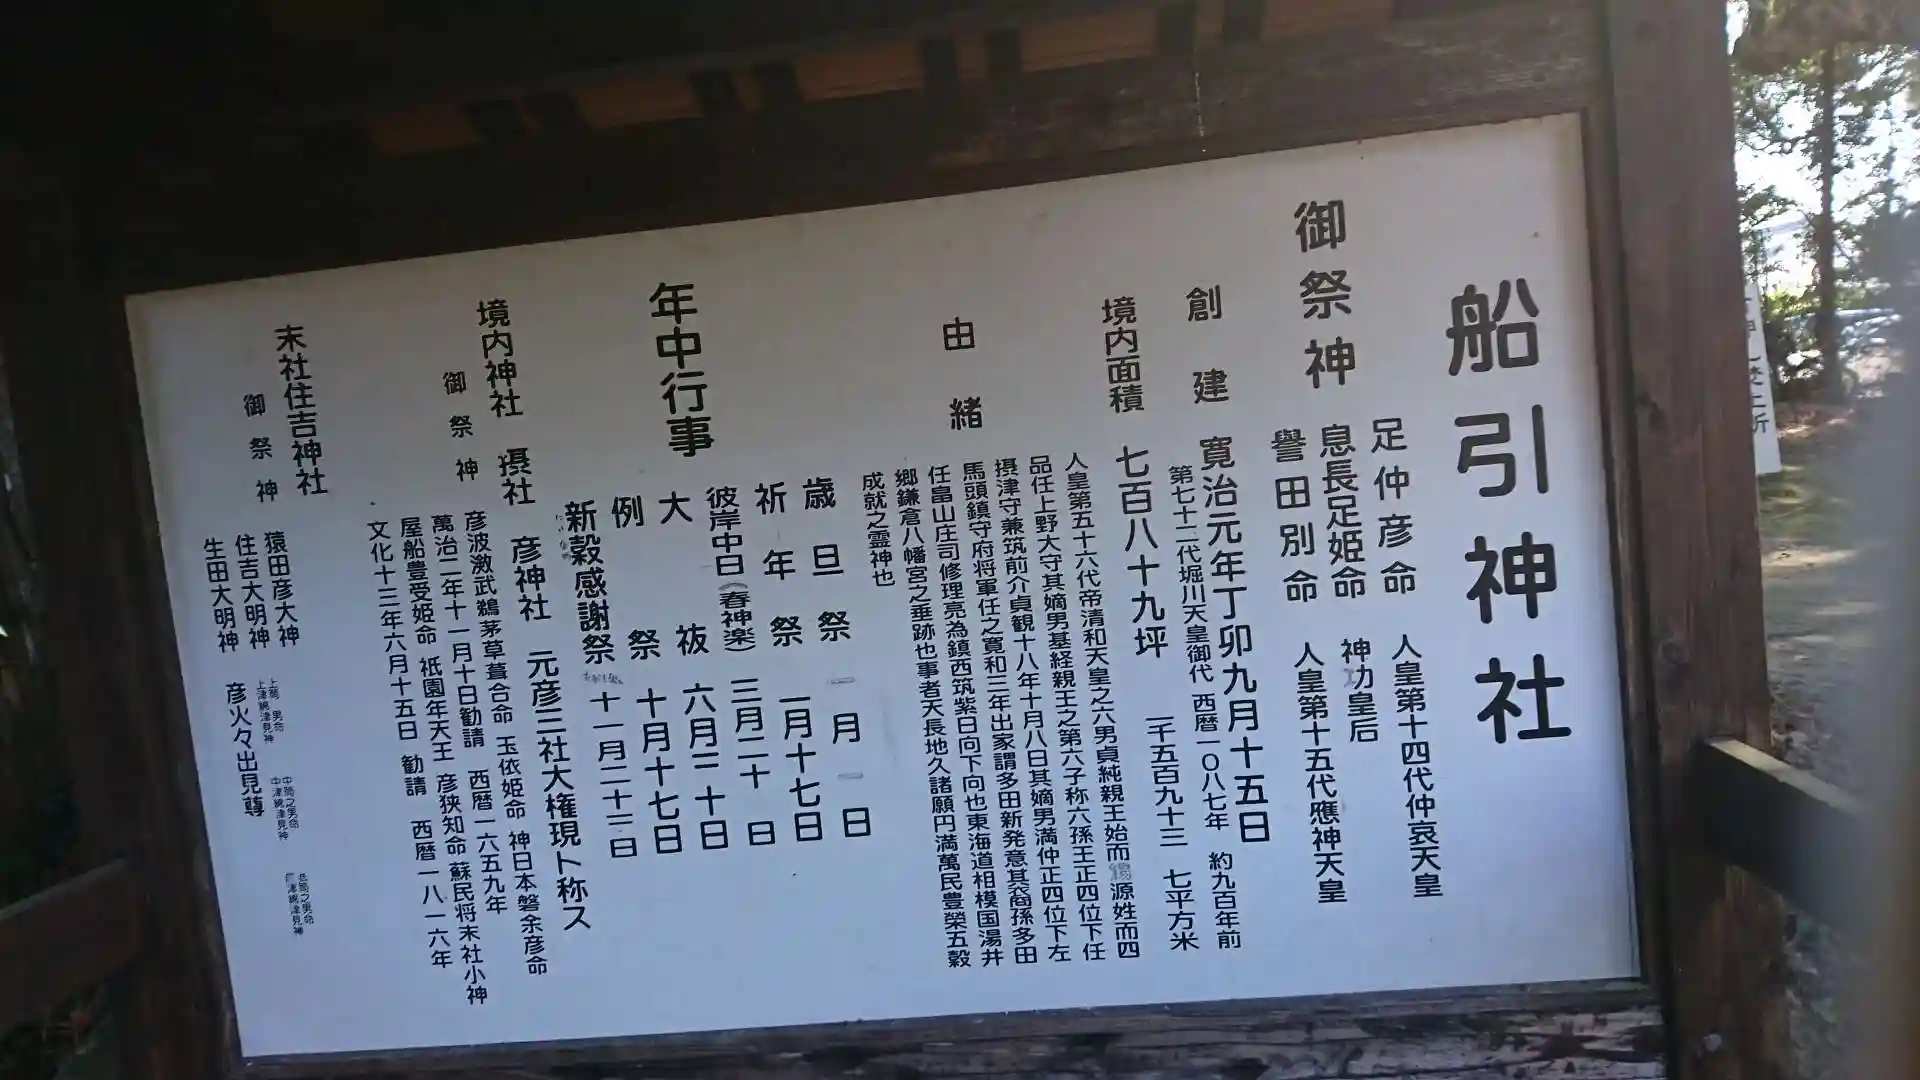 船引神社
御祭神
足仲彦命 人皇第十四代仲哀天皇
息長足姫命 神功皇后
譽田別命 人皇第十五代應神天皇
創建 寛治元年丁卯九月十五日
第七十二代堀川天皇御代 西暦一〇八七年 約九百年前
境内面積 七百八十九坪 二千五百九十三 七平方米
由緒
人皇第五十六代帝清和天皇之六男貞純親王始而賜源姓而四
品任上野大守其嫡男基経親王之第六子称六孫王正四位下任
摂津守兼筑前介貞観十八年十月八日其嫡男満仲正四位下左
馬頭鎮守府将軍任之寛和二年出家謂多田新発意其裔孫多田
任畠山庄司修理亮為鎮西筑紫日向下向也東海道相模国湯井
郷鎌倉八幡宮之垂跡也事者天長地久諸願円満萬民豊榮五穀
成就之霊神也
年中行事
歳旦祭 一月一日
祈年祭 一月十七日
彼岸中日(春神楽) 三月二十日
大祓 六月二十日
例祭 十月十七日
新穀感謝祭 十一月二十三日
境内神社 摂社 彦神社 元彦三社大権現ト称ス
御祭神
彦波瀲武鵜茅草葺合命 玉依姫命 神日本磐余彦命
萬治二年十一月十日勧請 西暦一六五九年
屋船豊受姫命 祇園年天王 彦狭知命 蘇民将末社小神
文化十三年六月十五日 勧請 西暦一八一六年
末社住吉神社
御祭神
猿田彦大神
住吉大明神
生田大明神
彦火々出見尊